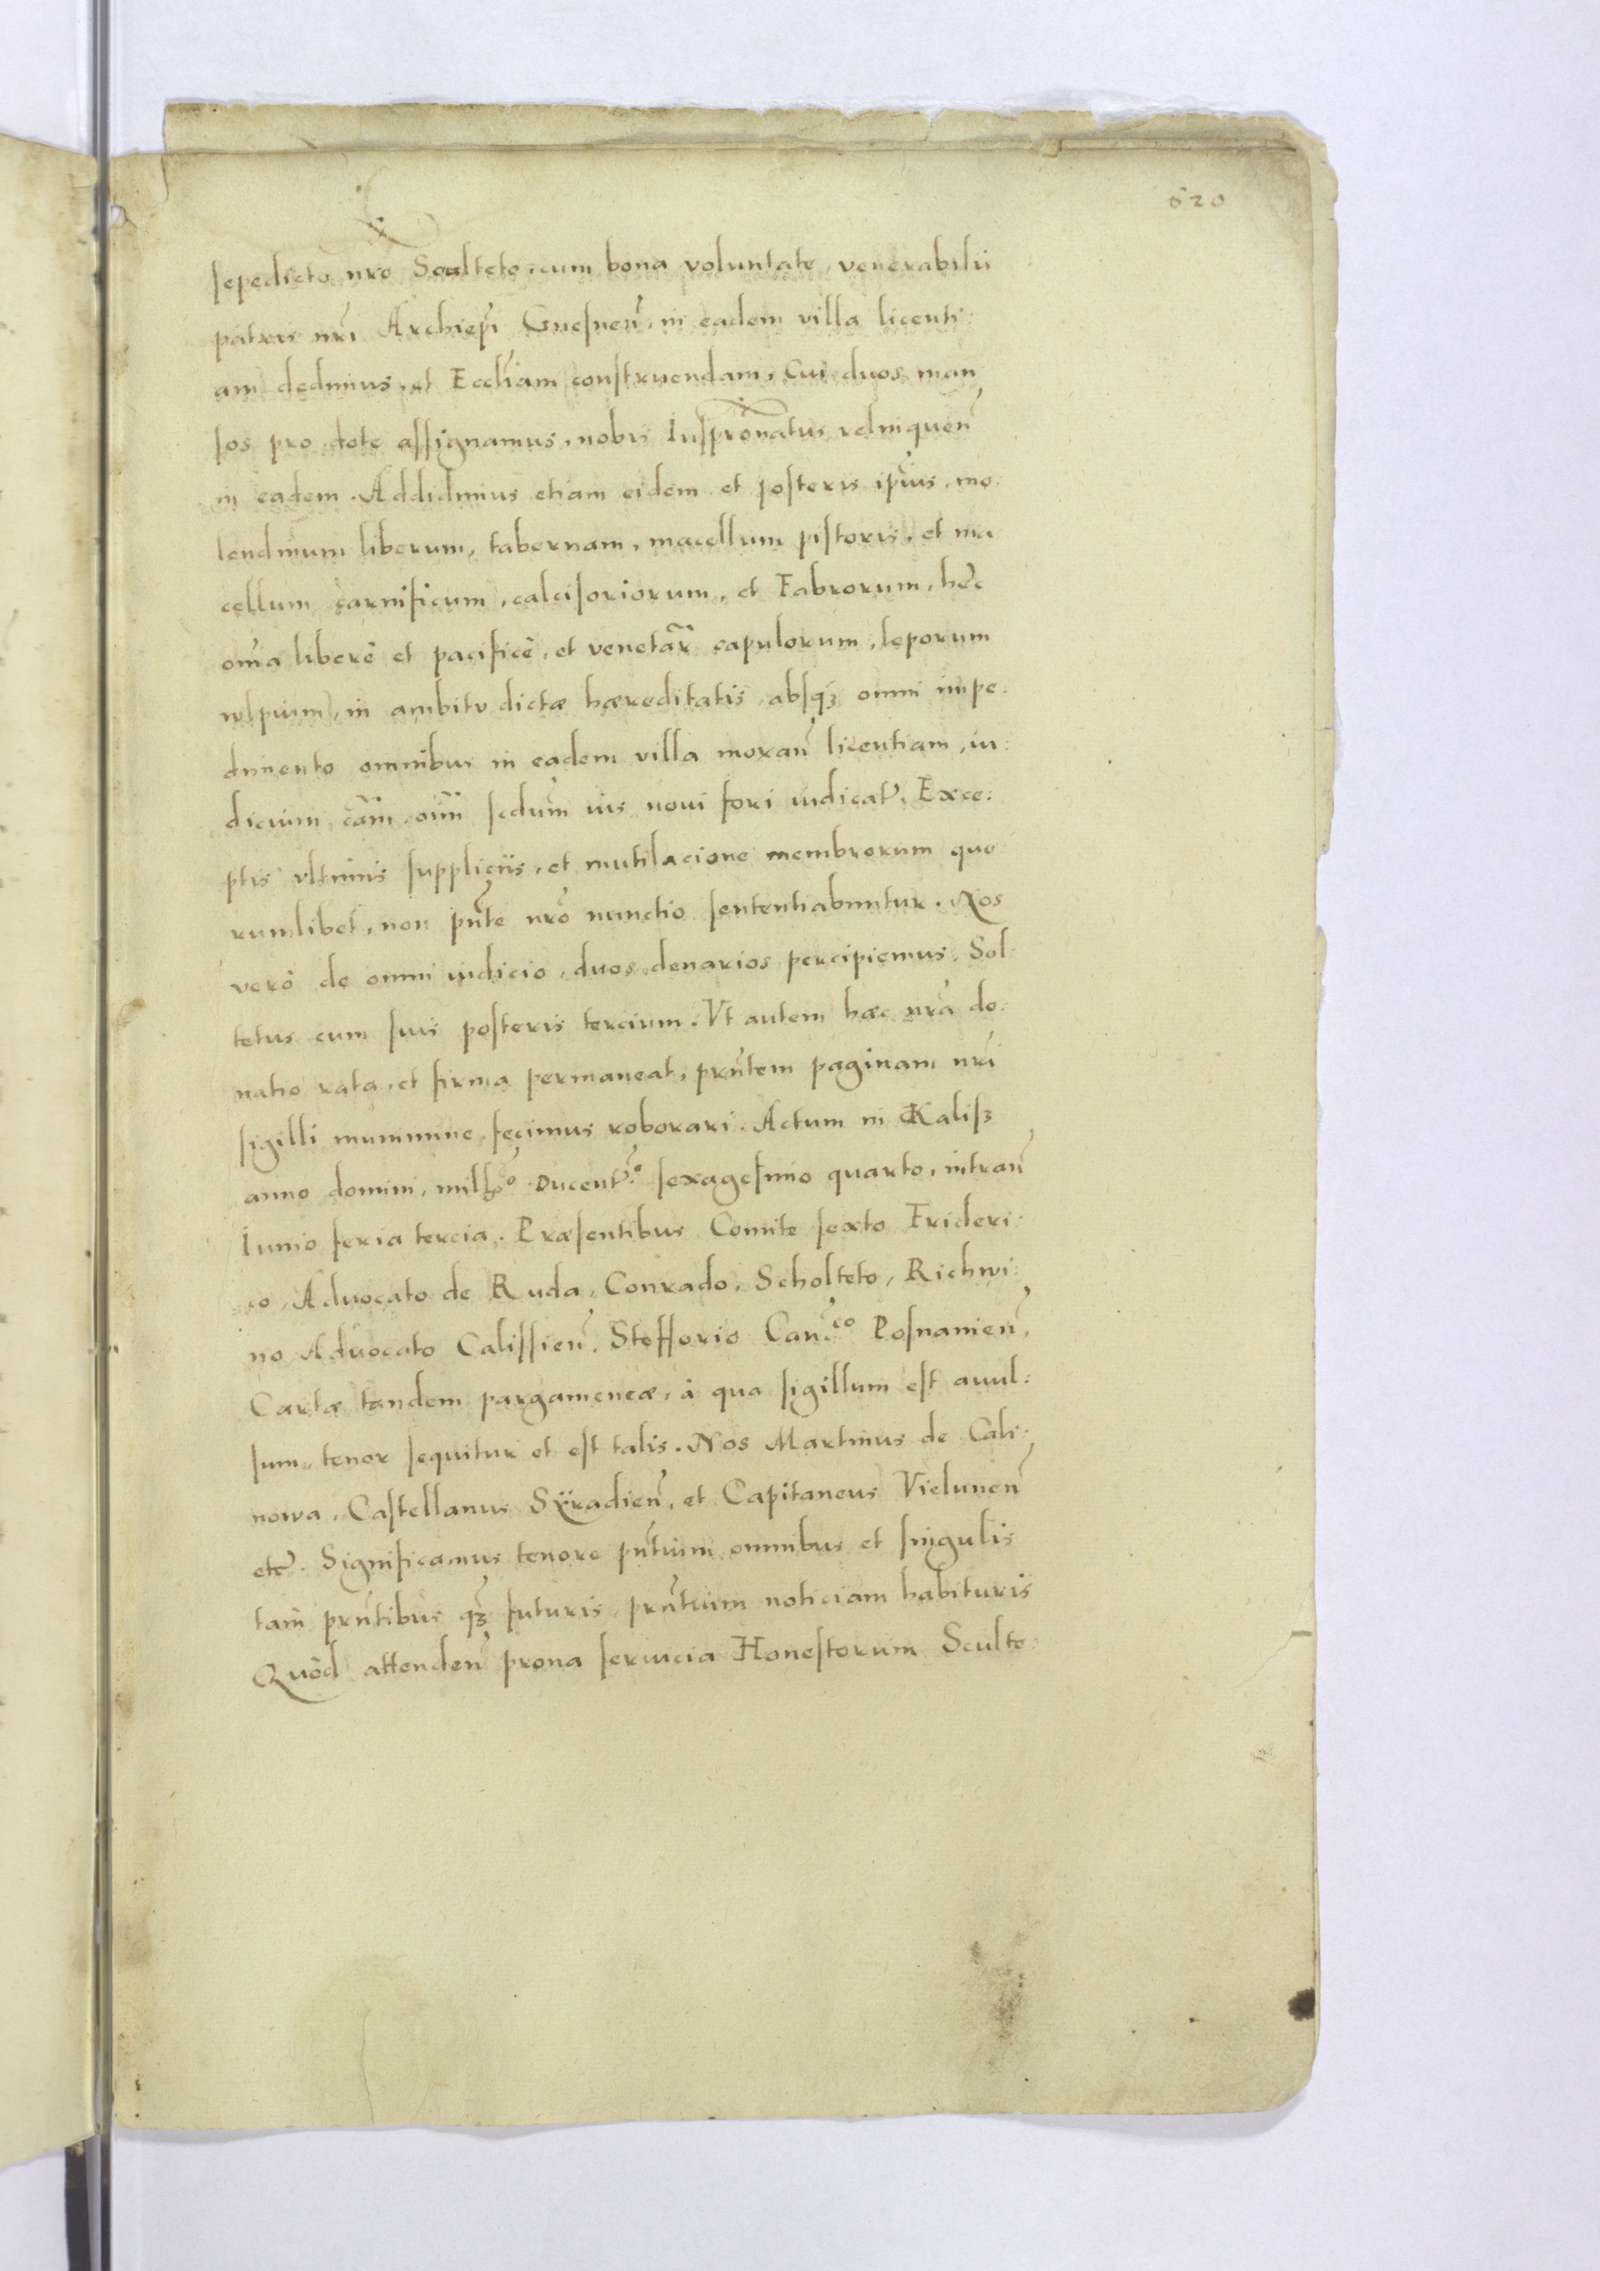 620
sepedicto nro Sculteto, cum bona voluntate, venerabilii
patris nri Archiepi Gnesnen, in eadem villa licenti
am dedimus, et Eccliam construendam, Cui duos man
sos pro dote assignamus, nobis Iuspronatus relinquen
in eadem. Addidimus etiam eidem et posteris ipius, mo
lendinum liberum, tabernam, macellum pistoris, et ma
cellum carnificum, calcisoriorum, et Fabrorum, hec
omia liberè et pacificè, et venetar capulorum, leporum
wlpium, in ambitu dictæ hæreditatis, absq3 omni impe:
dimento omnibus in eadem villa moran licentiam, iu:
dicium cam oim sedum ius novi fori iudicat, Exce:
ptis vltimis suppliciis, et mutilacione membrorum quo
rumlibet, non pnte nro nunctio sententiabuntur. Nos
verò de omni iudicio, duos denarios percipiemus, Sol
tetus cum suis posteris tercium. Vt autem hæc nra do:
natio rata, et firma permaneat, prntem paginam nri
sigilli munimine, fecimus roborari. Actum in Kalis3
anno domini, millo Ducento sexagesimo quarto, intran
Iunio feria tercia. Præsentibus Comite sexto Frideri:
co, Advocato de Ruda, Conrado, Scholteto, Richwi
no Aduocato Calissien, Stefforio Canco Posnanien,
Cartæ tandem pargameneæ, à qua sigillum est avul:
sum, tenor sequitur et est talis. Nos Martinus de Cali:
nowa, Castellanus Syradien, et Capitaneus Vielunen
etc. Significamus tenore pntium omnibus et singulis
tam prntibus q3 futuris, prntium noticiam habituris
Quòd attenden prona seruicia Honestorum Sculte